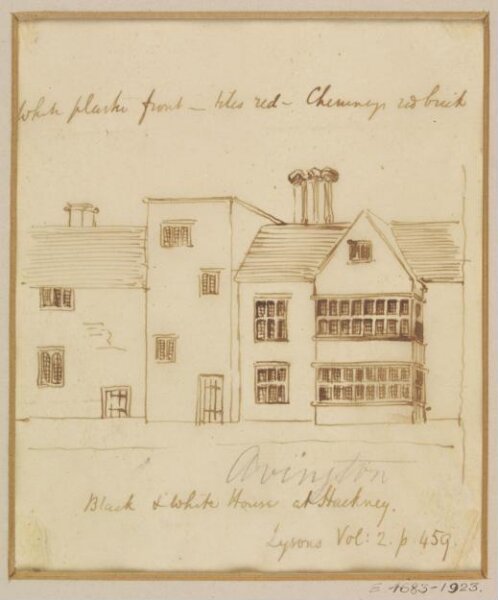 White plaster front – tiles red – Chemneys red brick
Avington
Black & White House at Hackney.
Lysons Vol: 2. p. 459.
E.1683-1923.